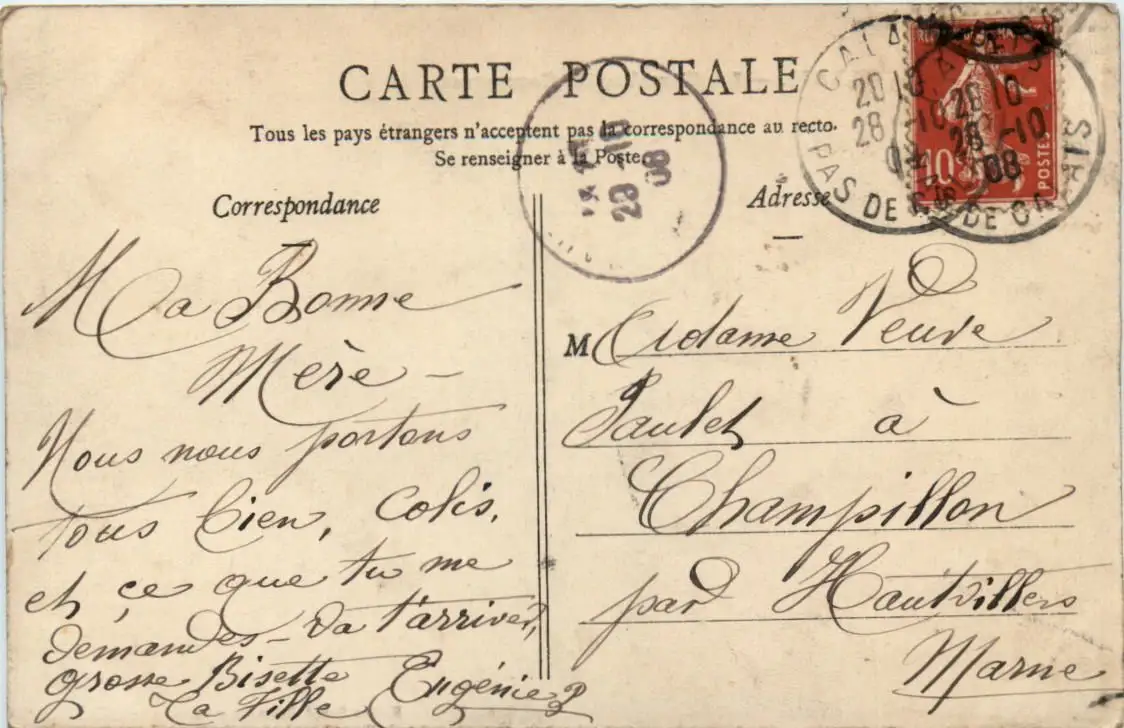 CARTE POSTALE
Tous les pays étrangers n'acceptent pas la correspondance au recto.
Se renseigner à la Poste.
Correspondance
Ma Bonne
Mère –
Nous nous portons
tous bien, Colis,
et çe que tu me
demandes – va t'arriver,
grosse Bisette
Ta Fille Eugénie
Adresse
M Madame Veuve
Paulet à
Champillon
par Hautvillers
Marne
CALAIS
20 10
28 -10
08
PAS DE CA
20 10
28 -10
08
10
POSTES
29 -10
08